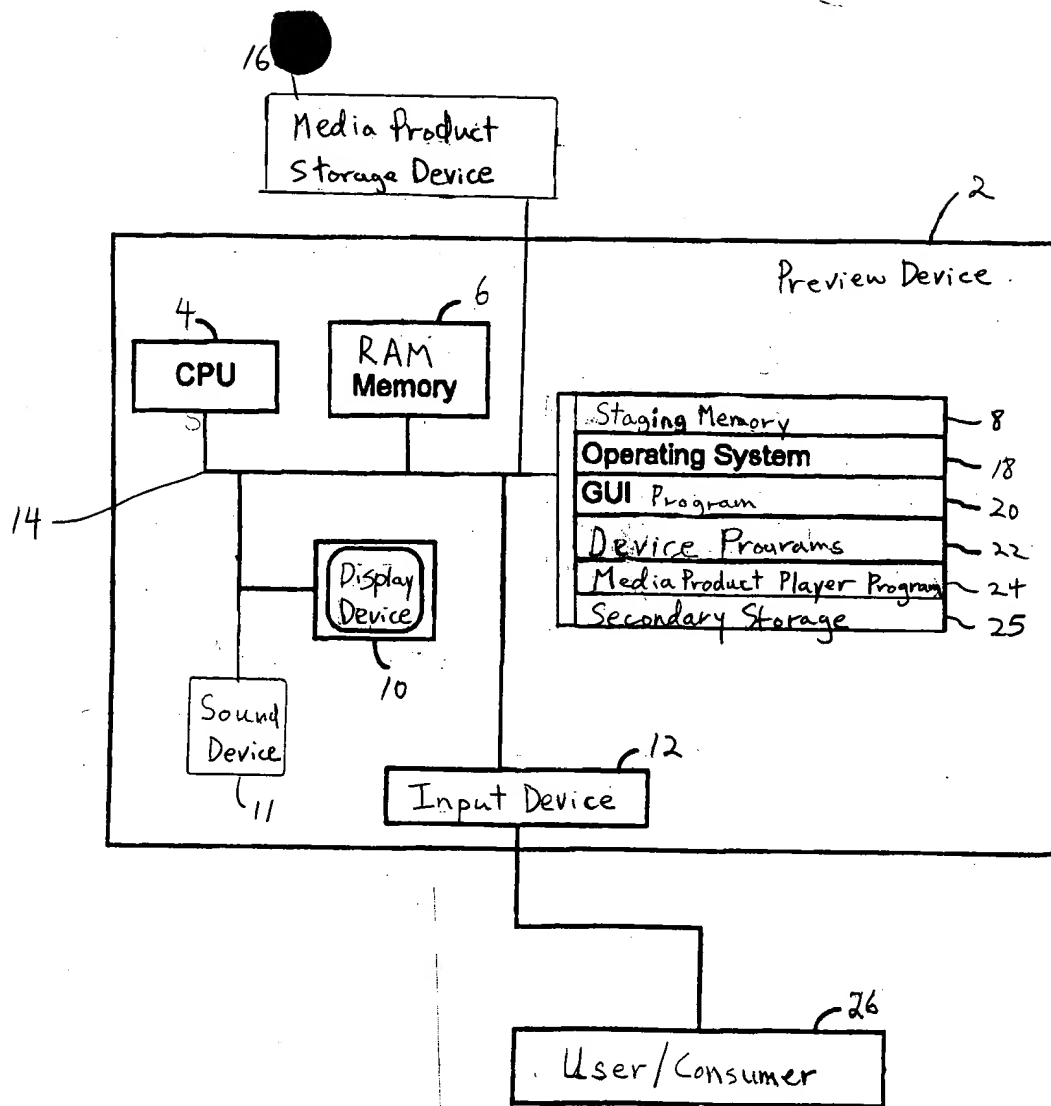 16
Media Product
Storage Device
2
Preview Device.
4
CPU
6
RAM
Memory
S
14
Staging Memory
8
Operating System
18
GUI Program
20
Device Prourams
22
Media Product Player Program
24
Secondary Storage
25
Display
Device
10
Sound
Device
11
12
Input Device
26
User/Consumer